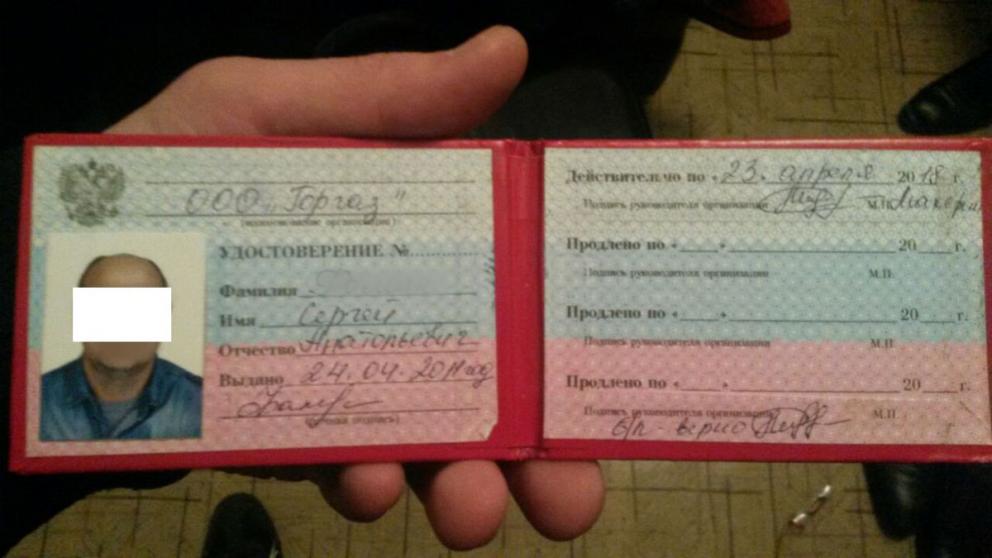 ООО „Горгаз"
(наименование организации)
УДОСТОВЕРЕНИЕ №
Фамилия
Имя Сергей
Отчество Анатольевич
Выдано 24.04.2017 год
(личная подпись)
Действительно по «23» апреля 2018 г.
Подпись руководителя организации М.П.
Продлено по « » 20 г.
Подпись руководителя организации М.П.
Продлено по « » 20 г.
Подпись руководителя организации М.П.
Продлено по « » 20 г.
Подпись руководителя организации М.П.
верно